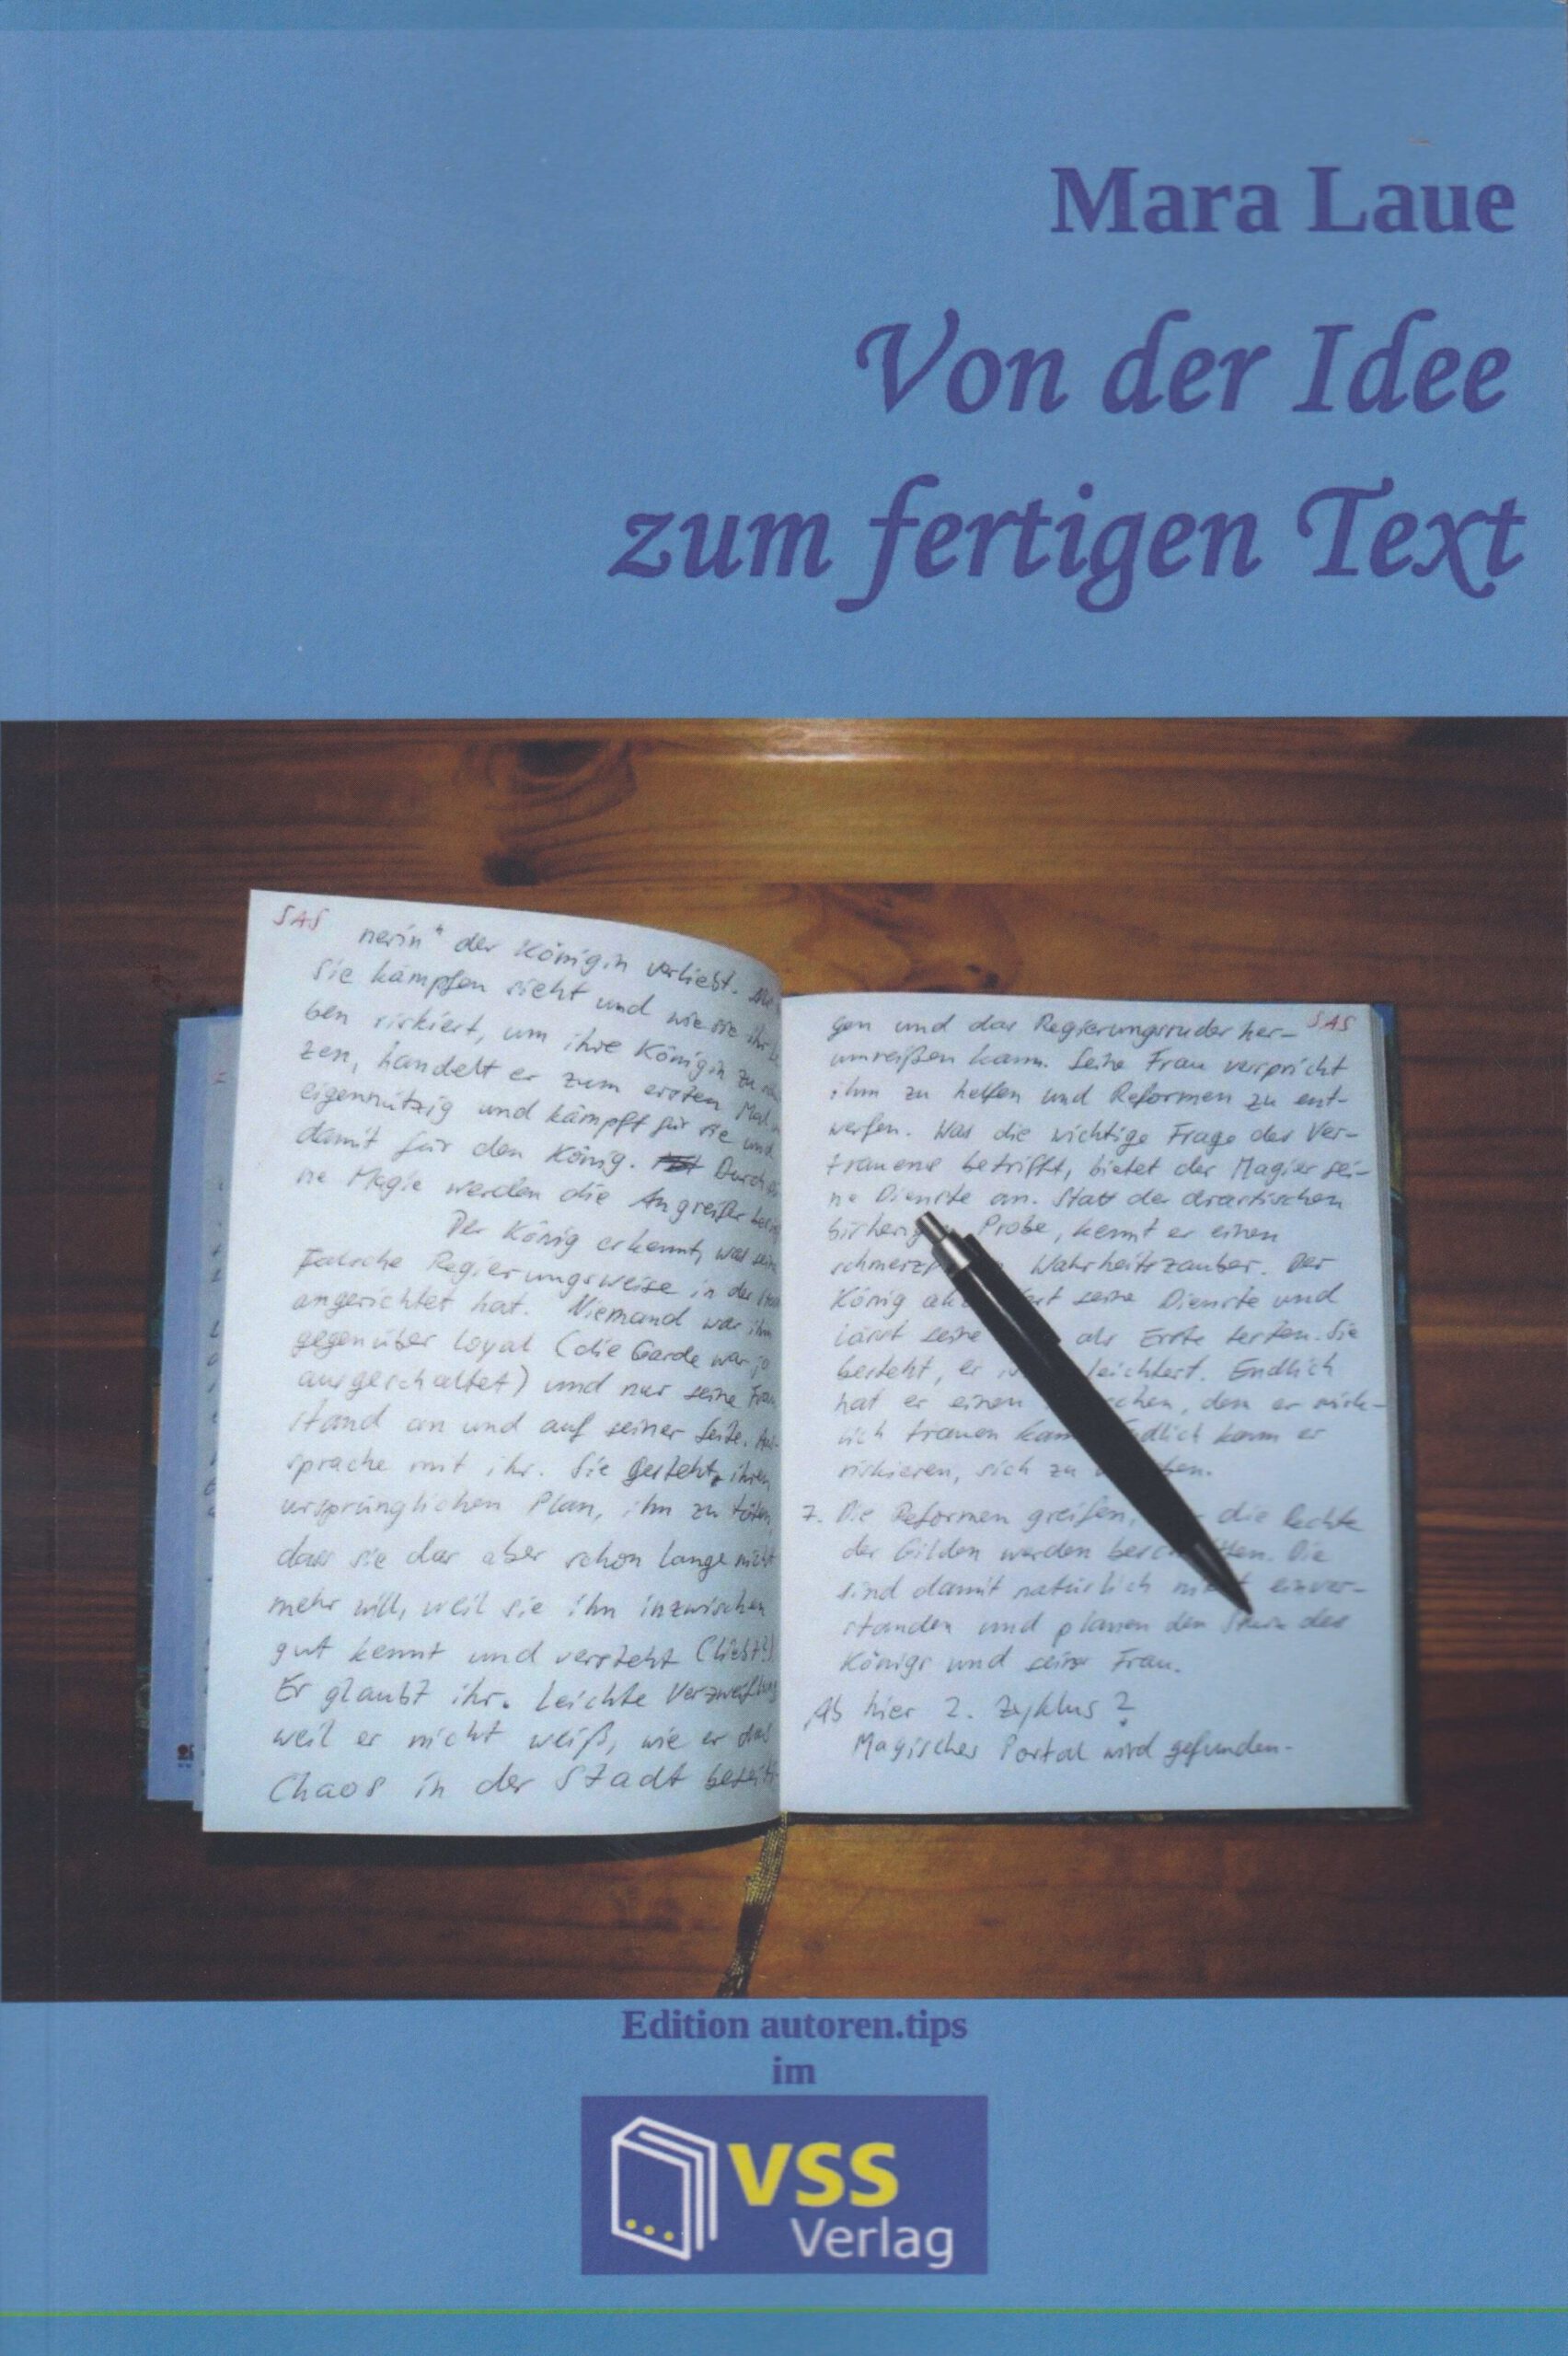 Mara Laue
Von der Idee
zum fertigen Text
SAS
nerin" der Königin verliebt.
sie kämpfen sieht und wie sie ihr
ben riskiert, um ihre Königin zu
zen, handelt er zum ersten Mal
eigennützig und kämpft für sie und
damit für den König. Durch
ne Magie werden die Angreifer
Der König erkennt, was seine
falsche Regierungsweise in der
angerichtet hat. Niemand war ihm
gegenüber loyal (die Garde war ja
ausgeschaltet) und nur seine Frau
stand an und auf seiner Seite.
sprache mit ihr. Sie gesteht ihren
ursprünglichen Plan, ihn zu töten,
dass sie das aber schon lange nicht
mehr will, weil sie ihn inzwischen
gut kennt und versteht (liebt?).
Er glaubt ihr. Leichte Verzweiflung
weil er nicht weiß, wie er das
Chaos in der Stadt
SAS
gen und das Regierungsruder her-
umreißen kann. Seine Frau verspricht
ihm zu helfen und Reformen zu ent-
werfen. Was die wichtige Frage des Ver-
trauens betrifft, bietet der Magier sei-
ne Dienste an. Statt der drastischen
Probe, kennt er einen
Wahrheitszauber. Der
König seine Dienste und
lässt seine als Erste testen. Sie
besteht, er leichtert. Endlich
hat er einen den er wirk-
lich trauen kann er
riskieren, sich zu
7. Die Reformen greifen, die Rechte
der Gilden werden Die
sind damit natürlich nicht einver-
standen und planen den Sturz des
Königs und seiner Frau.
Ab hier 2. Zyklus?
Magisches Portal wird gefunden.
Edition autoren.tips
im
VSS
Verlag